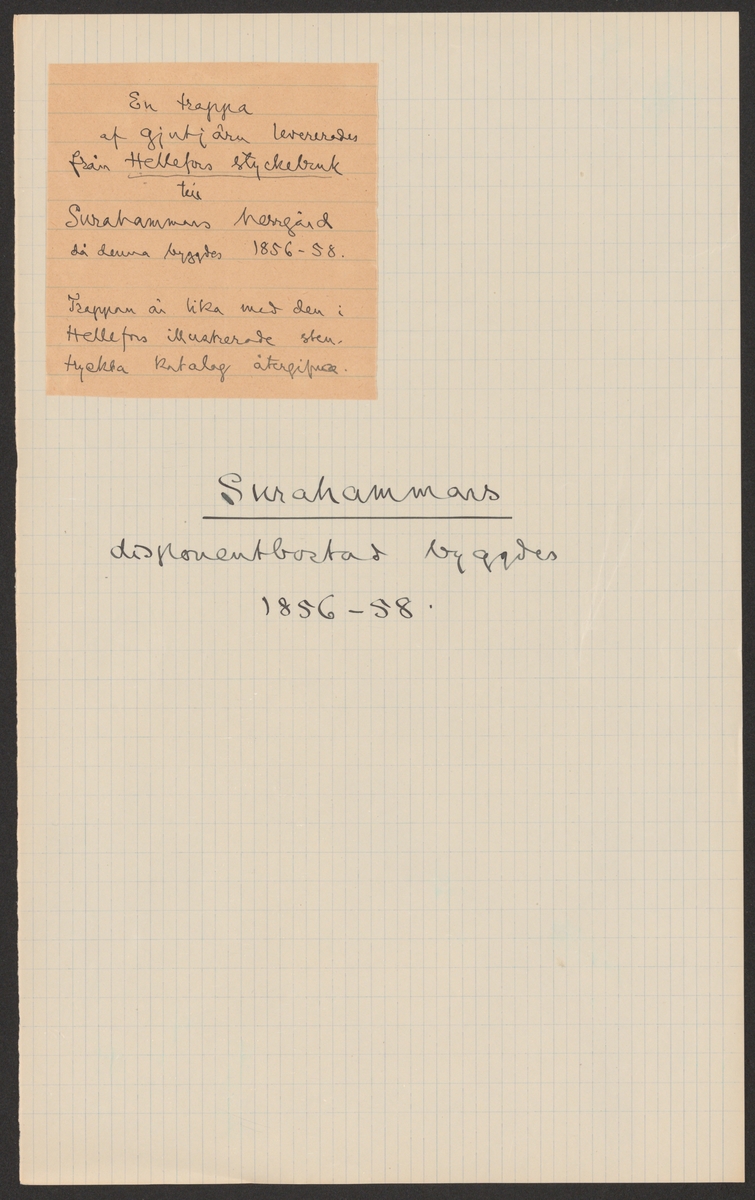 En trappa
af gjutjärn levererades
från Hellefors Styckebruk
till
Surahammars herrgård
då denna byggdes 1856-58.
Trappan är lika med den i
Hellefors illustrerade sten-
tryckta katalog återgifna.
Surahammars
disponentbostad byggdes
1856-58.